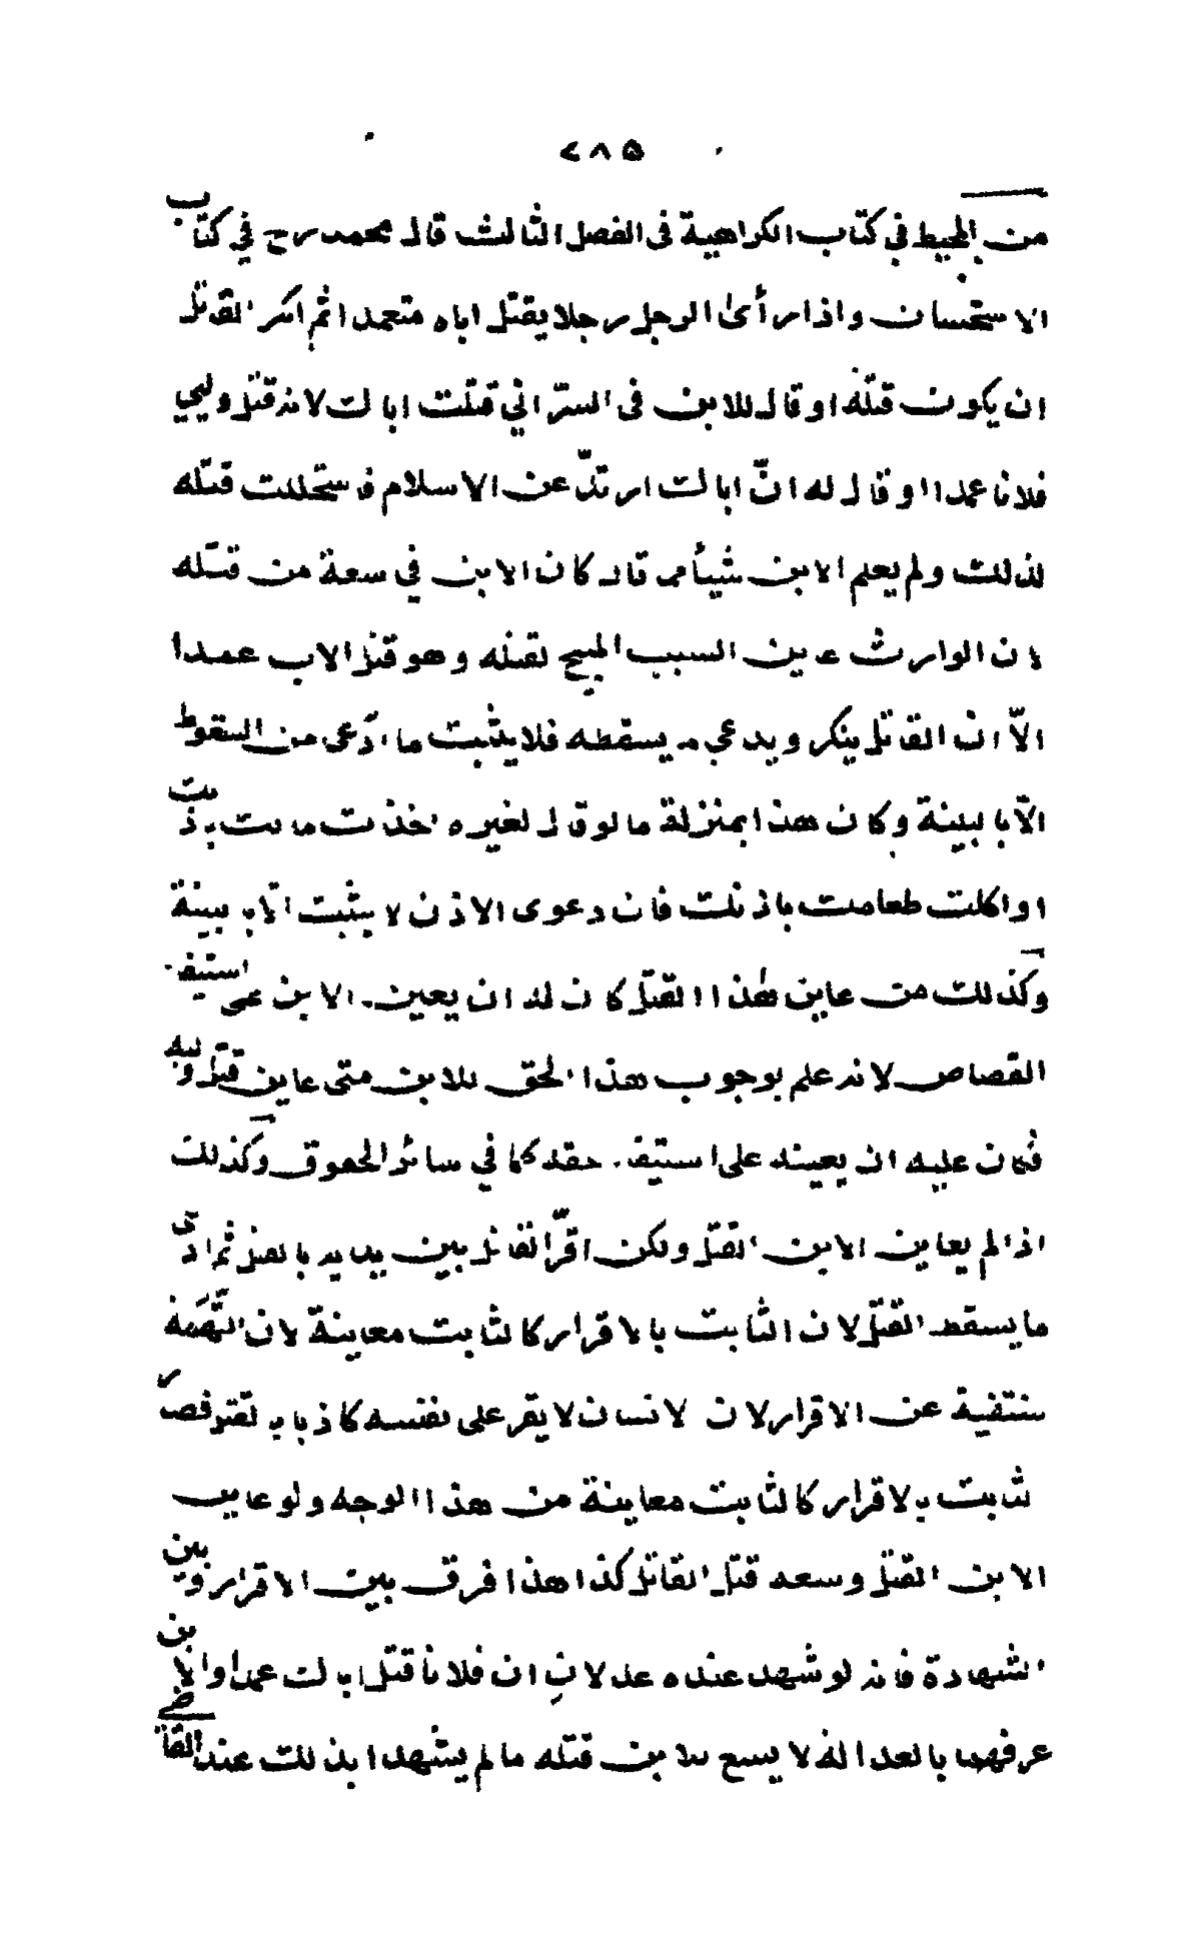 ٢٨٥
من المحيط في كتاب الكراهية في الفصل الثالث قال محمد رح في كتاب
الاستحسان واذا رأى الرجل رجلا يقتل اباه متعمدا ثم انكر القاتل
ان يكون قتله او قال للابن في السرّ اني قتلت اباك لانه قتل وليي
فلانا عمدا او قال له انّ اباك ارتدّ عن الاسلام فاستحللت قتله
لذلك ولم يعلم الابن شيأ مما قال كان الابن في سعة من قتله
لان الوارث عاين السبب المبيح لقتله وهو قتل الاب عمدا
الاّ ان القاتل ينكر ويدعي ما يسقطه فلا يثبت ما ادّعى من السقوط
الاّ بالبينة وكان هذا بمنزلة ما لو قال لغيره اخذت مالك باذنك
او اكلت طعامك باذنك فان دعوى الاذن لا يثبت الاّ ببينة
وكذلك من عاين هذا القتل كان له ان يعين الابن على استيفاء
القصاص لانه علم بوجوب هذا الحق للابن متى عاين قتل وليه
فكان عليه ان يعينه على استيفاء حقه كما في سائر الحقوق وكذلك
اذا لم يعاين الابن القتل ولكن اقرّ القاتل بين يديه بالقتل ثم ادّعى
ما يسقط القتل لان الثابت بالاقرار كالثابت معاينة لان التّهمة
منتفية عن الاقرار لان الانسان لا يقر على نفسه كاذبا بالقتل فصار
الثابت بالاقرار كالثابت معاينة من هذا الوجه ولو عاين
الابن القتل وسعه قتل القاتل كذا هذا فرق بين الاقرار وبين
الشهادة فانه لو شهد عنده عدلان ان فلانا قتل اباك عمدا والابن
عرفهما بالعدالة لا يسع للابن قتله ما لم يشهدا بذلك عند القاضي